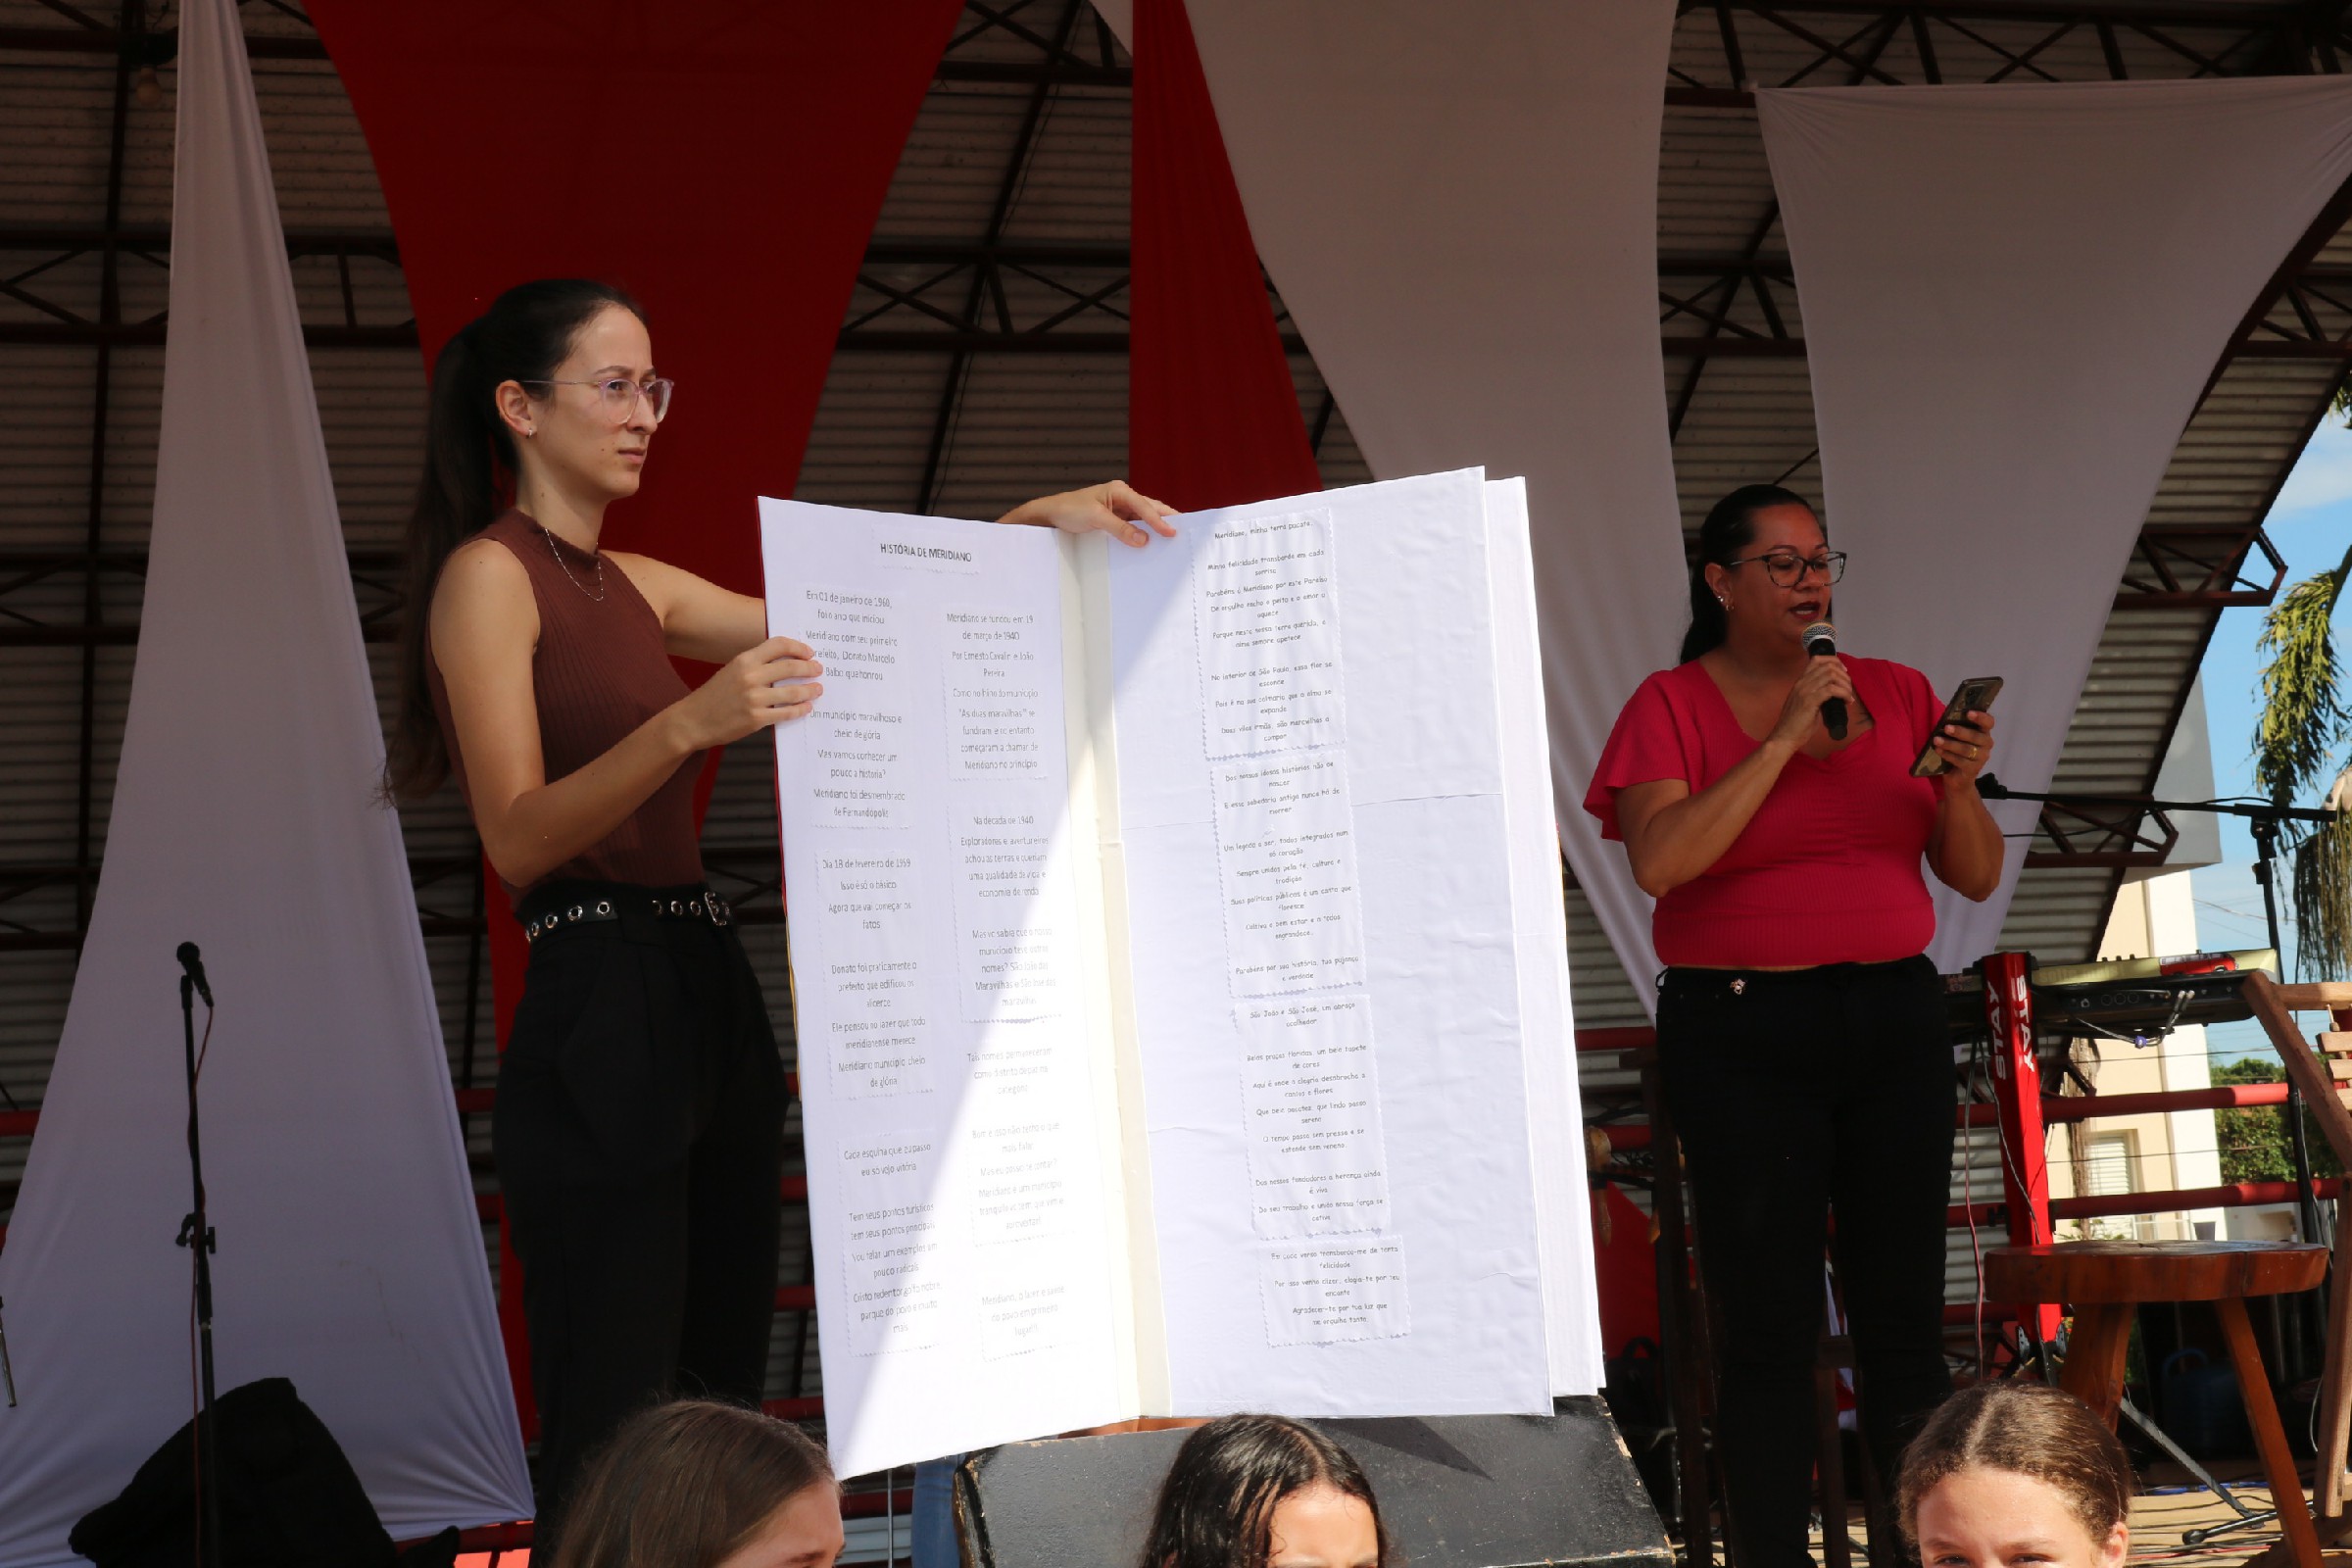 HISTÓRIA DE MERIDIANO
Em 01 de janeiro de 1960,
foi o ano que iniciou
Meridiano com seu primeiro
prefeito, Donato Marcelo
Balbo que honrou
Um município maravilhoso e
cheio de glória
Mas vamos conhecer um
pouco a historia?
Meridiano foi desmembrado
de Fernandópolis
Dia 18 de fevereiro de 1959
Isso é só o básico
Agora que vai começar os
fatos
Donato foi praticamente o
prefeito que edificou os
alicerce
Ele pensou no lazer que todo
meridianense merece
Meridiano município cheio
de glória
Cada esquina que eu passo
eu só vejo vitória
Tem seus pontos turísticos
tem seus pontos principais
Vou falar um exemplos um
pouco radicais
Cristo redentor, golfo nobre,
parque do povo e muito
mais
Meridiano se fundou em 19
de março de 1940
Por Ernesto Cavalin e João
Pereira
Como no hino do município
"As duas maravilhas" se
fundiram e no entanto
começaram a chamar de
Meridiano no princípio
Na década de 1940
Exploradores e aventureiros
achou as terras e queriam
uma qualidade de vida e
economia de renda
Mas vc sabia que o nosso
município teve outros
nomes? São João das
Maravilhas e São José das
maravilhas
Tais nomes permaneceram
como distrito de paz na
categoria
Bom e isso não tenho o que
mais falar
Mas eu posso te contar?
Meridiano é um município
tranquilo
Meridiano, o lazer e
do povo em primeiro
lugar!!
Meridiano, minha terra pacata,
Minha felicidade transborda em cada
sorriso
Parabéns ó Meridiano por este Paraíso
De orgulho encho o peito e o amor o
aquece
Porque nesta nossa terra querida, a
alma sempre apetece
No interior de São Paulo, essa flor se
esconde
Pois é na sua calmaria que a alma se
expande
Duas vilas irmãs, são maravilhas a
compor
Das nossas ideias histórias hão de
nascer
E essa sabedoria antiga nunca há de
morrer
Um legado a ser, todos integrados num
só coração
Sempre unidos pela fé, cultura e
tradição
Suas políticas públicas é um canto que
floresce
Cultiva o bem estar e a todos
engrandece.
Parabéns por sua história, tua pujança
e verdade
São João e São José, um abraço
acolhedor
Belas praças floridas, um belo tapete
de cores
Aqui é onde a alegria desabrocha a
cantos e flores
Que bela pacatez, que lindo passo
sereno
O tempo passa sem pressa e se
estende sem veneno
Dos nossos fundadores a herança ainda
é viva
Do seu trabalho e união nossa força se
cativa
Em cada verso transborda-me de tanta
felicidade
Por isso venho dizer, elogia-te por seu
encanto
Agradecer-te por tua luz que
me orgulha tanto.
STAY
STAY